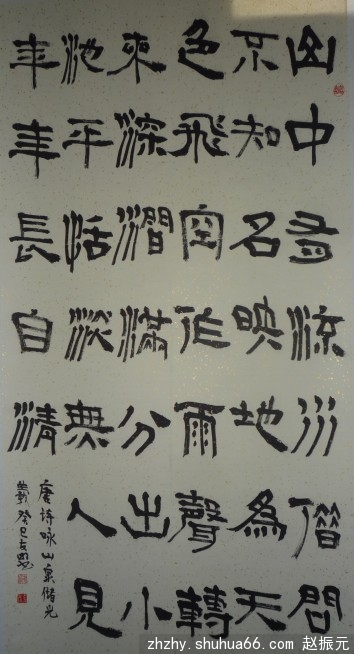 山中有流水借問
不知名映地為天
色飛空作雨聲轉
來深澗滿分出小
池平恬淡無人見
年年長自清
唐詩咏山泉儲光
羲癸巳
zhzhy.shuhua66.com 赵振元